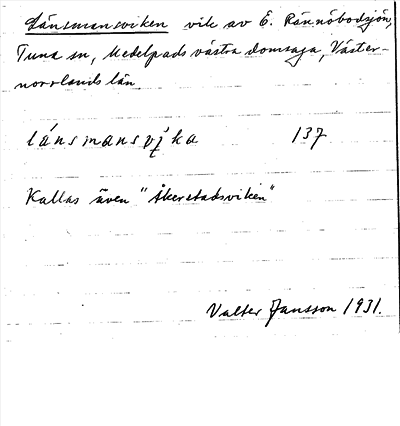 Länsmansviken vik av Ö. Rännöbodsjön,
Tuna sn, Medelpads västra domsaga, Väster-
norrlands län.
länsmansvika 137
Kallas även "Åkerstadsviken"
Valter Jansson 1931.